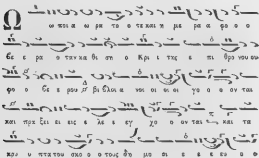 Ω ω ποι α ω ρα το τε και η με ρα φο ο ο
θε ε ρα ο ταν κα θι ση ο Κρι ι της ε πι θρο νου ου
φο ο θε ρου βι βλοι α νοι οι οι οι γο ο ον ται
και πρα ξει εις ε λε εγ χο ον ται και τα
κρυ υ πτα του σκο ο τους δη μο σι ε ε ευ ο ο